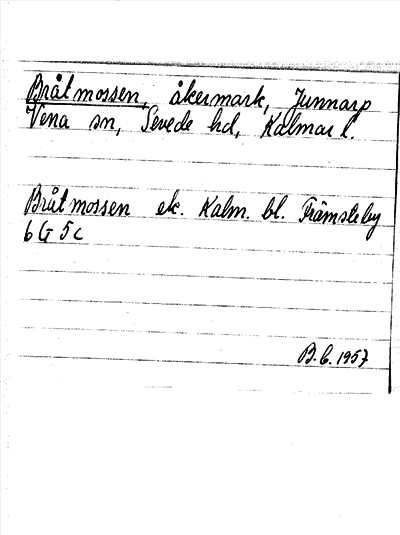 Bråtmossen, åkermark, Junnarp
Vena sn, Sevede hd, Kalmar l.
Bråtmossen ek. Kalm. bl. Främsteby
6 G 5 c
B. C. 1957